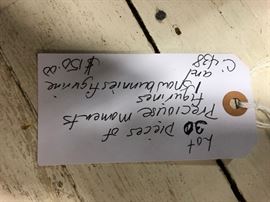 Lot
30 Pieces of
Preciouse Moments
figurines
1 Snowbunnies figurine
and
$150.00
C 438